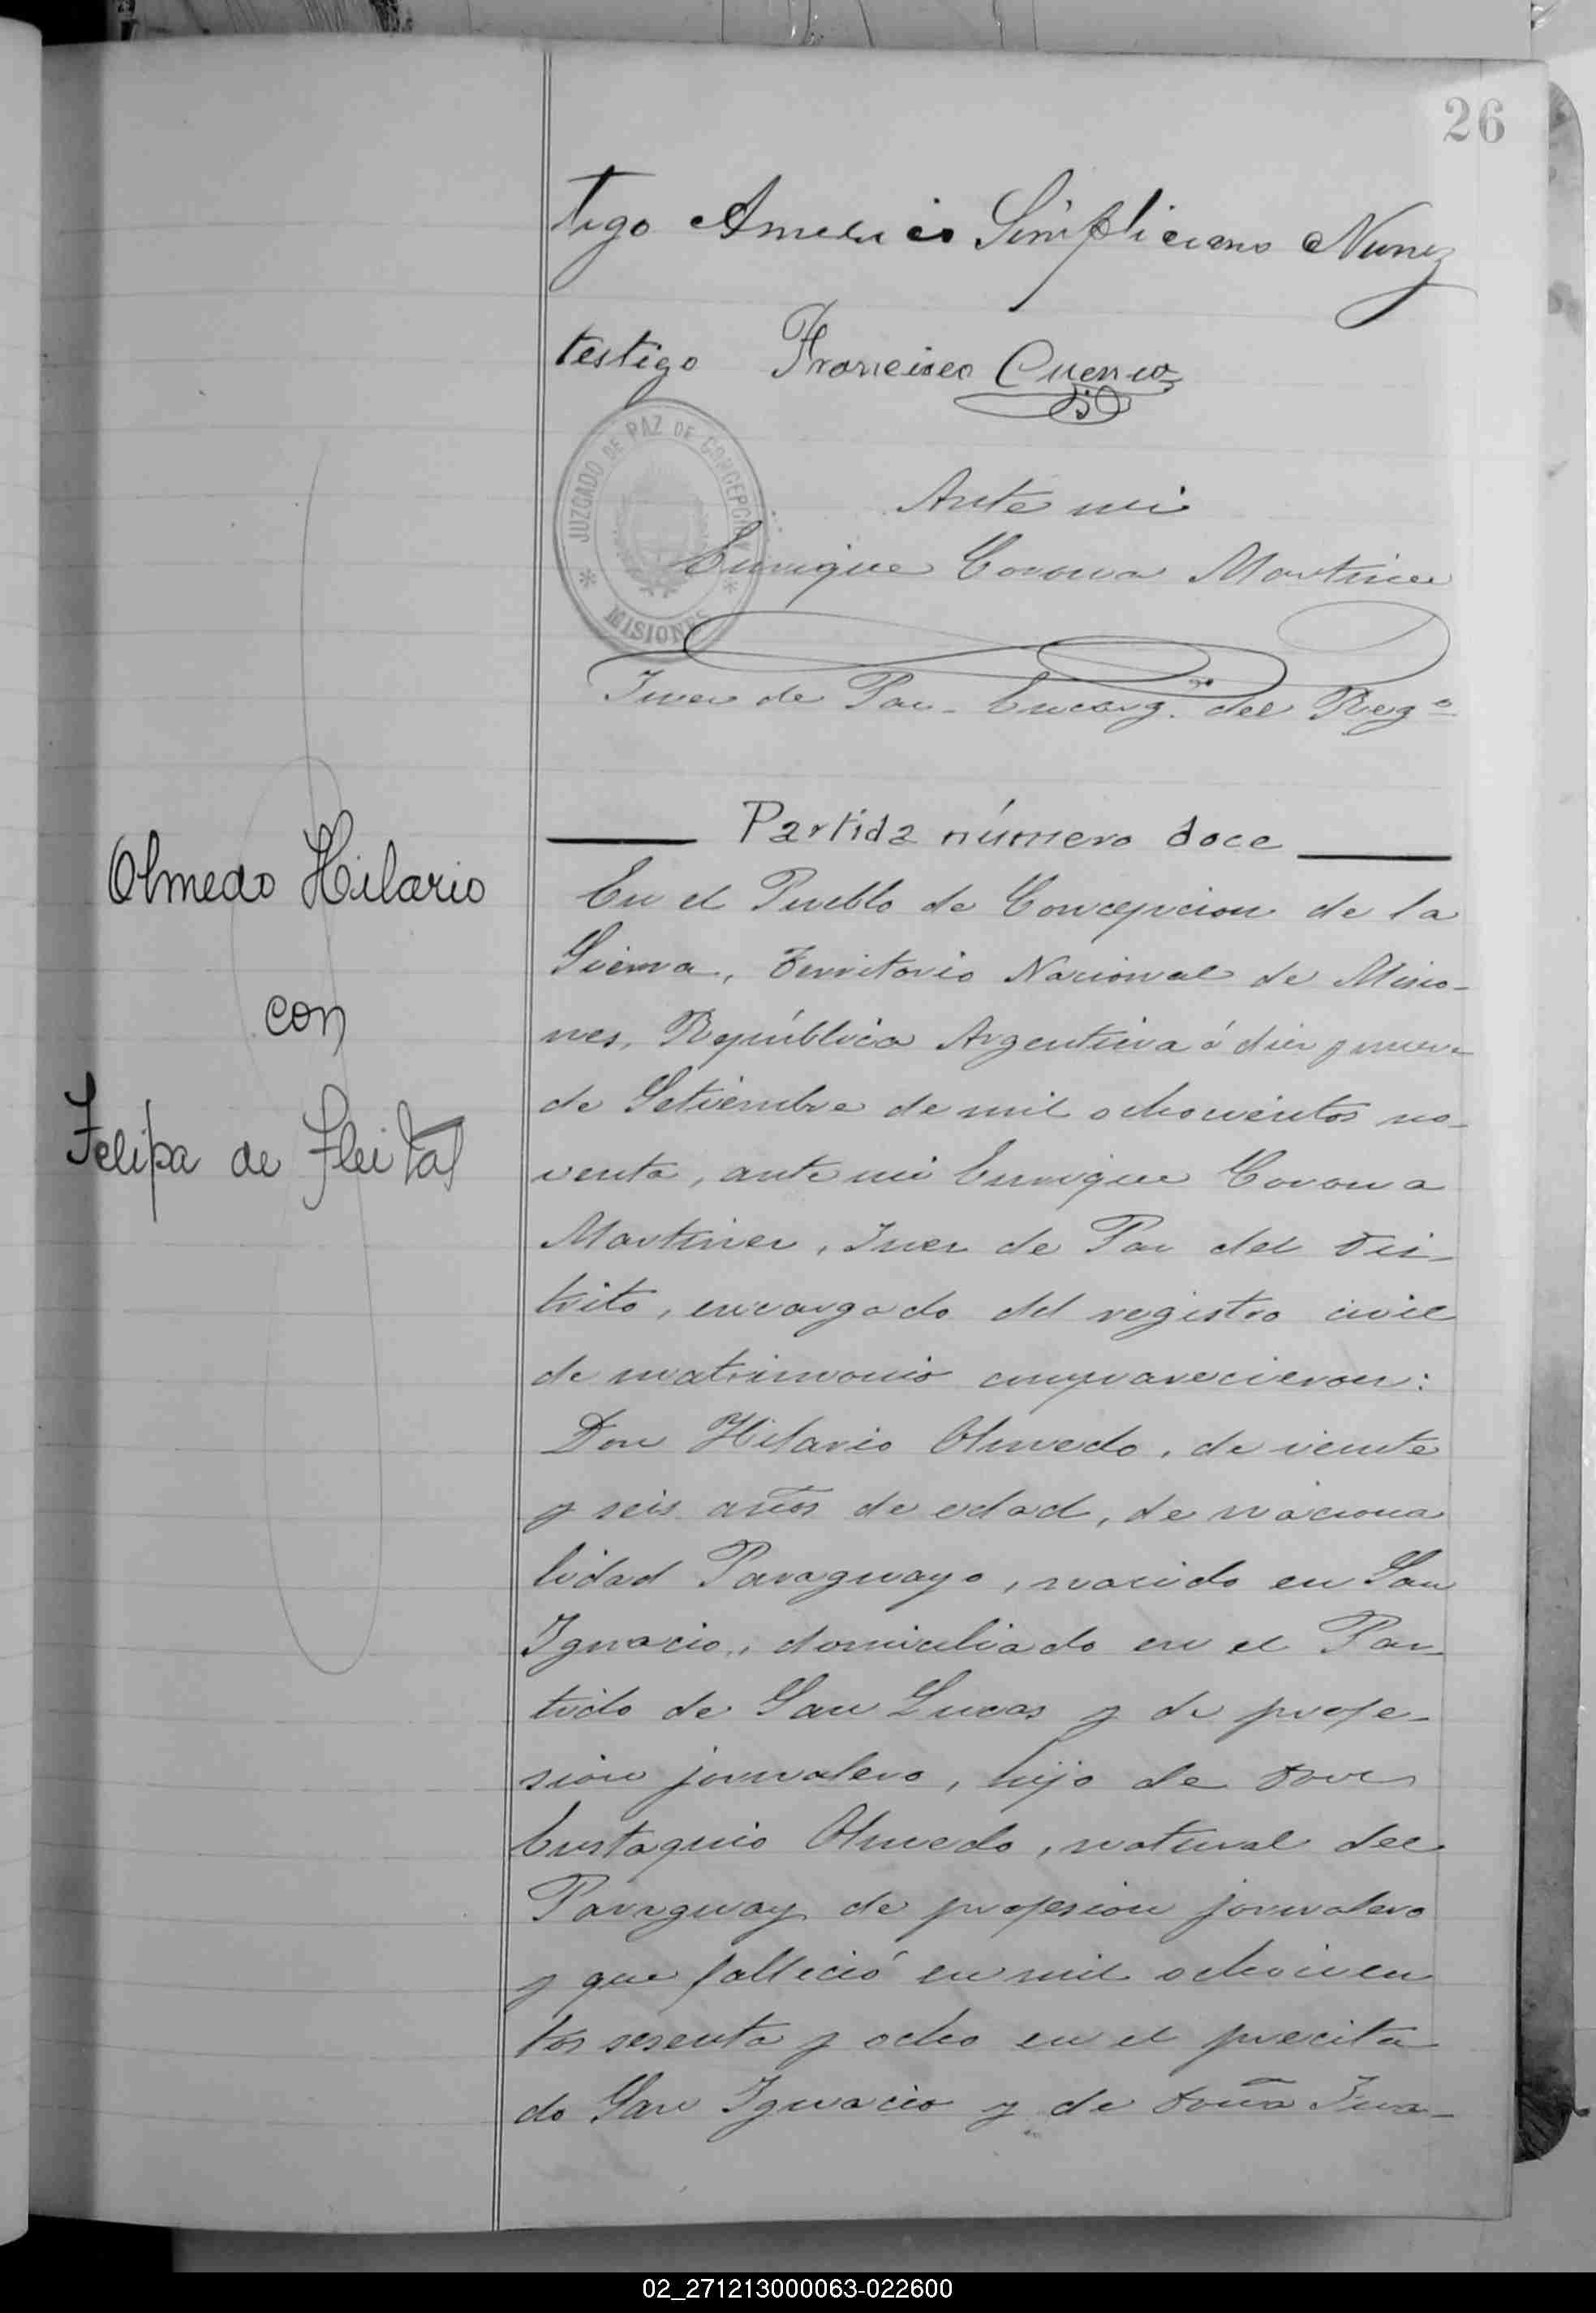 26
tigo Americo Simpliciano Nunez
testigo Francisco Cuenca
JUZGADO DE PAZ DE CONCEPCION
MISIONES
Ante mi
Enrique Corona Martinez
Juez de Paz - Encarg. del Regº
Partida número doce
Olmedo Hilario
con
Felipa de Fleitas
En el Pueblo de Concepcion de la
Sierra, Territorio Nacional de Misio-
nes, República Argentina á diez y nueve
de Setiembre de mil ochocientos no-
venta, ante mi Enrique Corona
Martinez, Juez de Paz del Dis-
trito, encargado del registro civil
de matrimonio comparecieron:
Don Hilario Olmedo, de veinte
y seis años de edad, de naciona
lidad Paraguayo, nacido en San
Ignacio, domiciliado en el Par-
tido de San Lucas y de profe-
sion jornalero, hijo de Don
Eustaquio Olmedo, natural del
Paraguay de profesion jornalero
y que falleció en mil ochocien
tos sesenta y ocho en el precita
do San Ignacio y de Doña Jua-
02_271213000063-022600